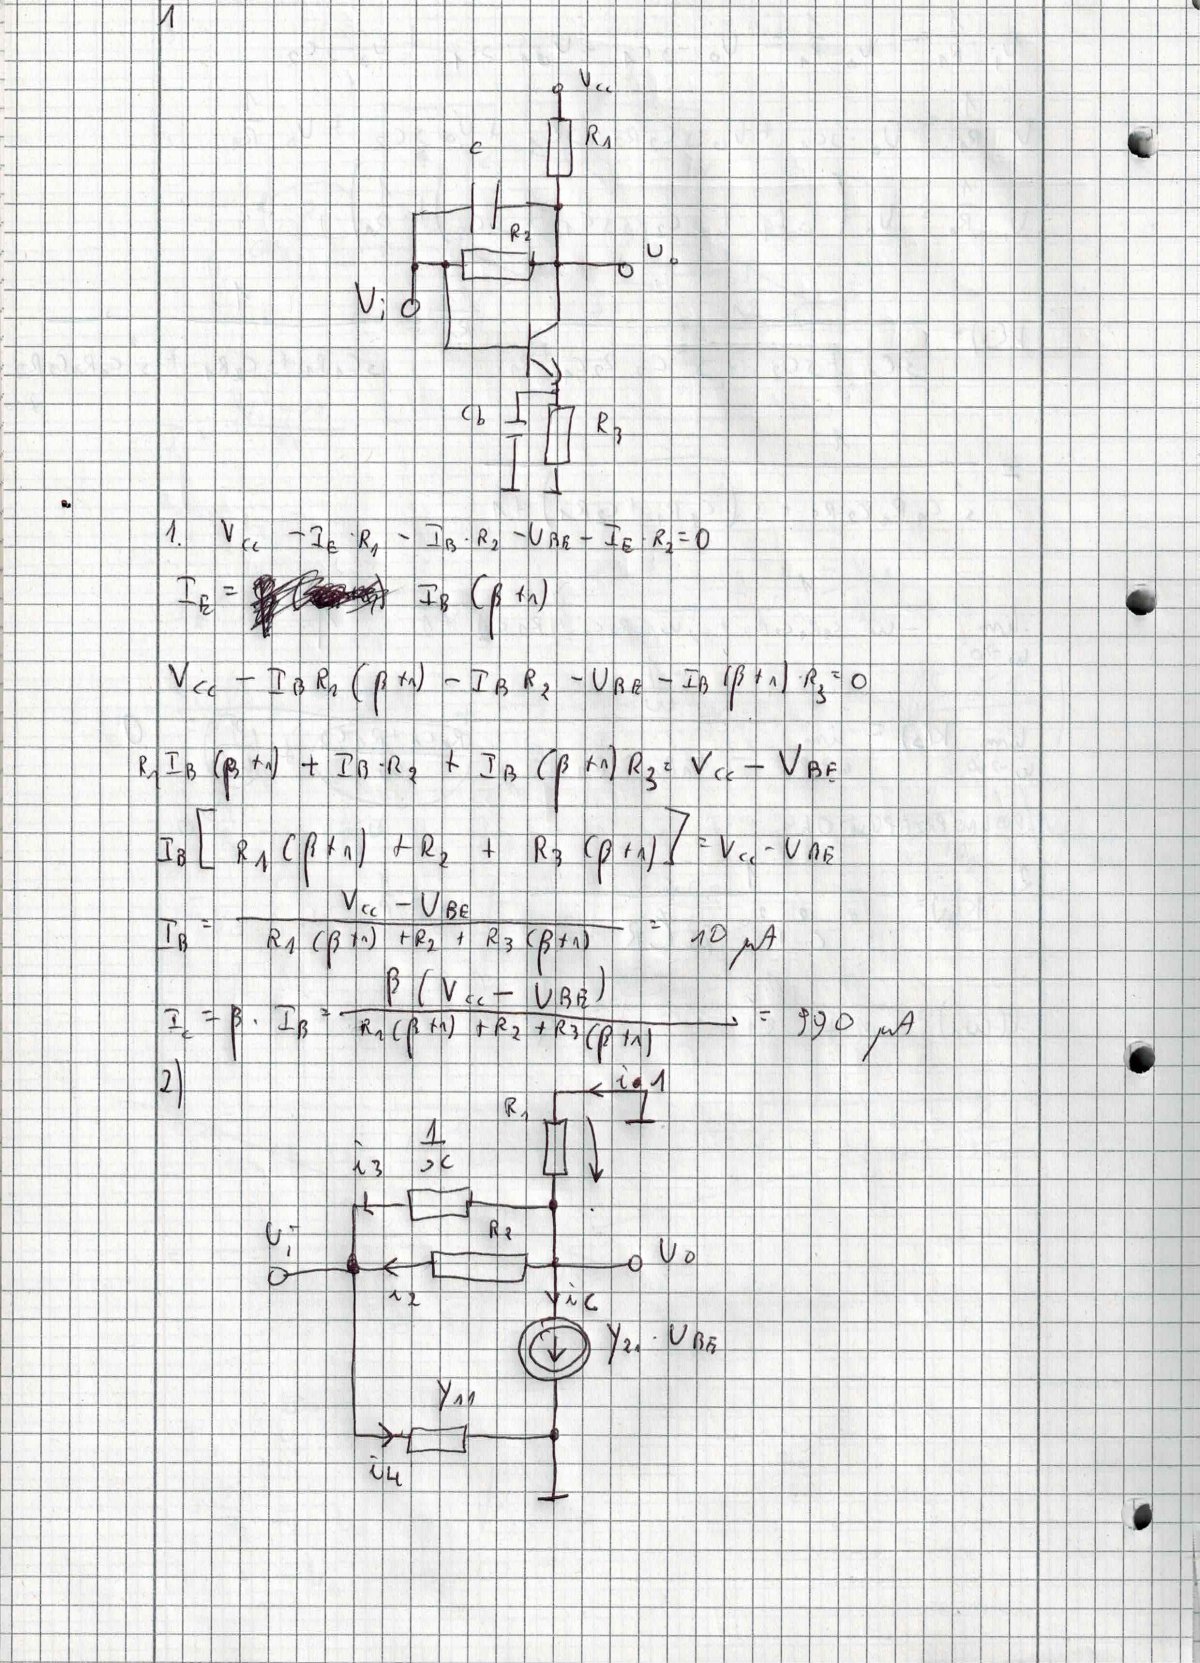 1
Vcc
R1
C
R2
U0
Vi
Cb
R3
1. Vcc - IE · R1 - IB · R2 - UBE - IE · R2 = 0
IE = IB (β+1)
Vcc - IB R1 (β+1) - IB R2 - UBE - IB (β+1) · R3 = 0
R1 IB (β+1) + IB · R2 + IB (β+1) R3 = Vcc - VBE
IB [ R1 (β+1) + R2 + R3 (β+1) ] = Vcc - UBE
IB = Vcc - UBE / R1 (β+1) + R2 + R3 (β+1) = 10 μA
Ic = β · IB = β (Vcc - UBE) / R1 (β+1) + R2 + R3 (β+1) = 990 μA
2)
R1
1 / sC
i3
R2
Ui
U0
i2
ic
Y21 · UBE
Y11
i4